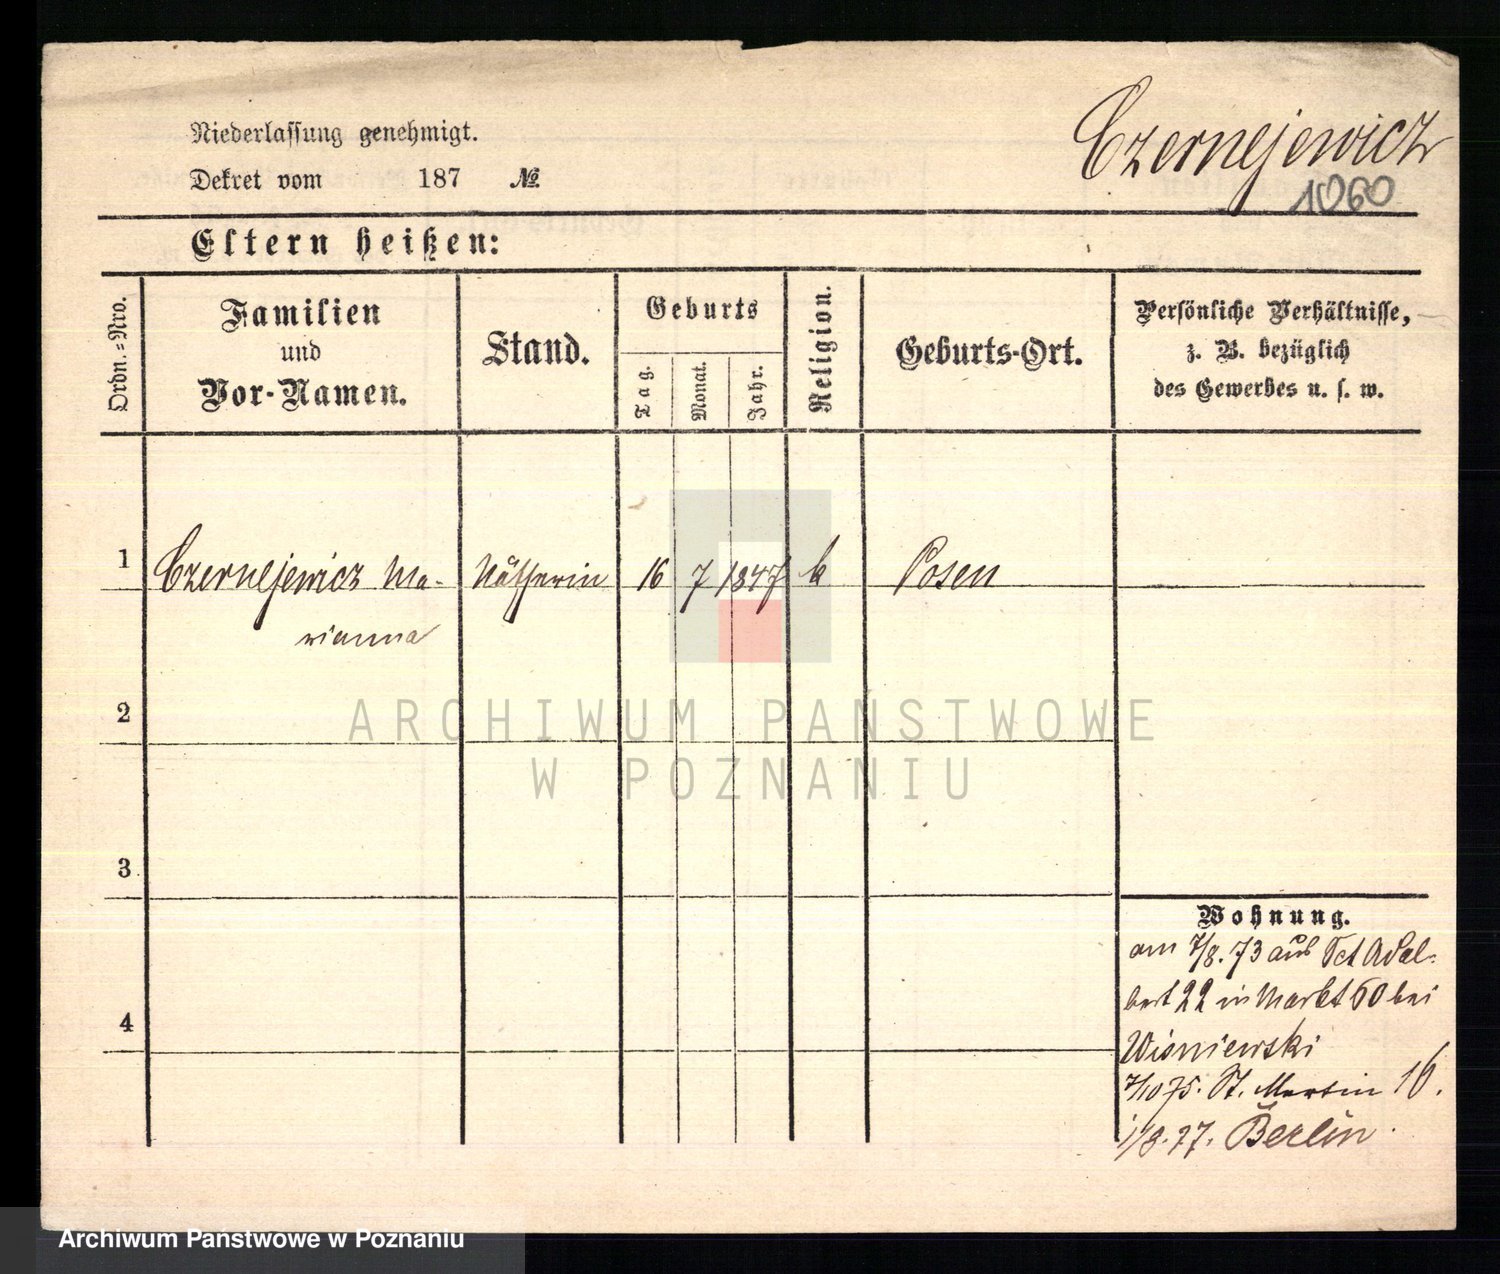 Niederlassung genehmigt.
Dekret vom 187 №
Czernejewicz
1060
Eltern heißen:
Ordn.=Nro.
Familien
und
Vor-Namen.
Stand.
Geburts
Tag.
Monat.
Jahr.
Religion.
Geburts-Ort.
Persönliche Verhältnisse,
z. B. bezüglich
des Gewerbes u. s. w.
1 Czernejewicz Ma- Nätherin 16 7 1847 k Posen
rianna
2
3
4
Wohnung.
am 7/8. 73 aus Sct Adal-
bert 22 in Markt 60 bei
Wisniewski
7/10 75. St. Martin 16.
1/8. 77. Berlin.
ARCHIWUM PAŃSTWOWE
W POZNANIU
Archiwum Państwowe w Poznaniu